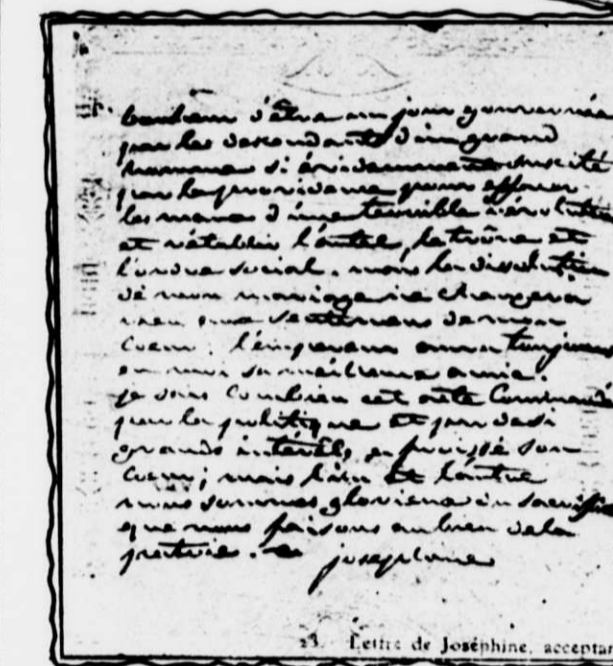 bonheur d'être un jour gouvernée
par les descendants d'un grand
homme si évidemment suscité
par la providence pour effacer
les maux d'une terrible révolution
et rétablir l'autel, le trône et
l'ordre social. mais la dissolution
de mon mariage ne changera
rien aux sentimens de mon
cœur: l'empereur aura toujours
en moi sa meilleure amie.
je sais combien cet acte commandé
par la politique et par de si
grands intérêts, a froissé son
cœur; mais l'un et l'autre
nous sommes glorieux du sacrifice
que nous faisons au bien de la
patrie.
joséphine
23. Lettre de Joséphine, acceptan